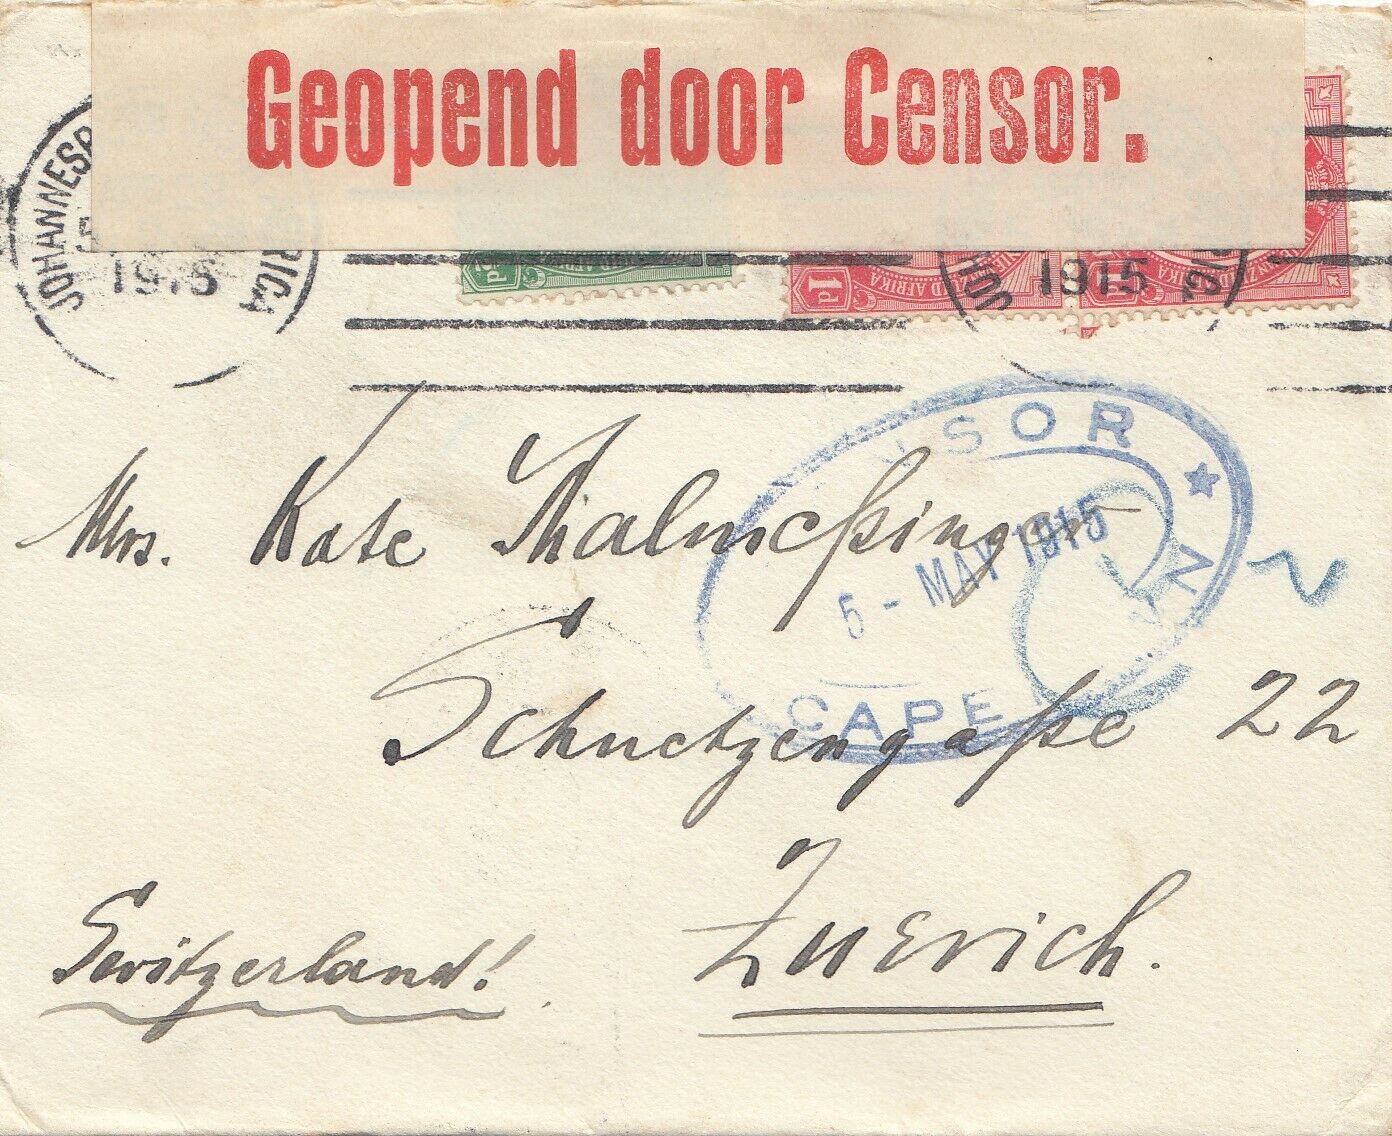 Geopend door Censor.
JOHANNESB RICA
1915
1d
1d
JO 1915
SOR
5 - MAY 1915
CAPE
Mrs. Kate Malmeßinger
Schuetzengaße 22
Zuerich.
Switzerland!